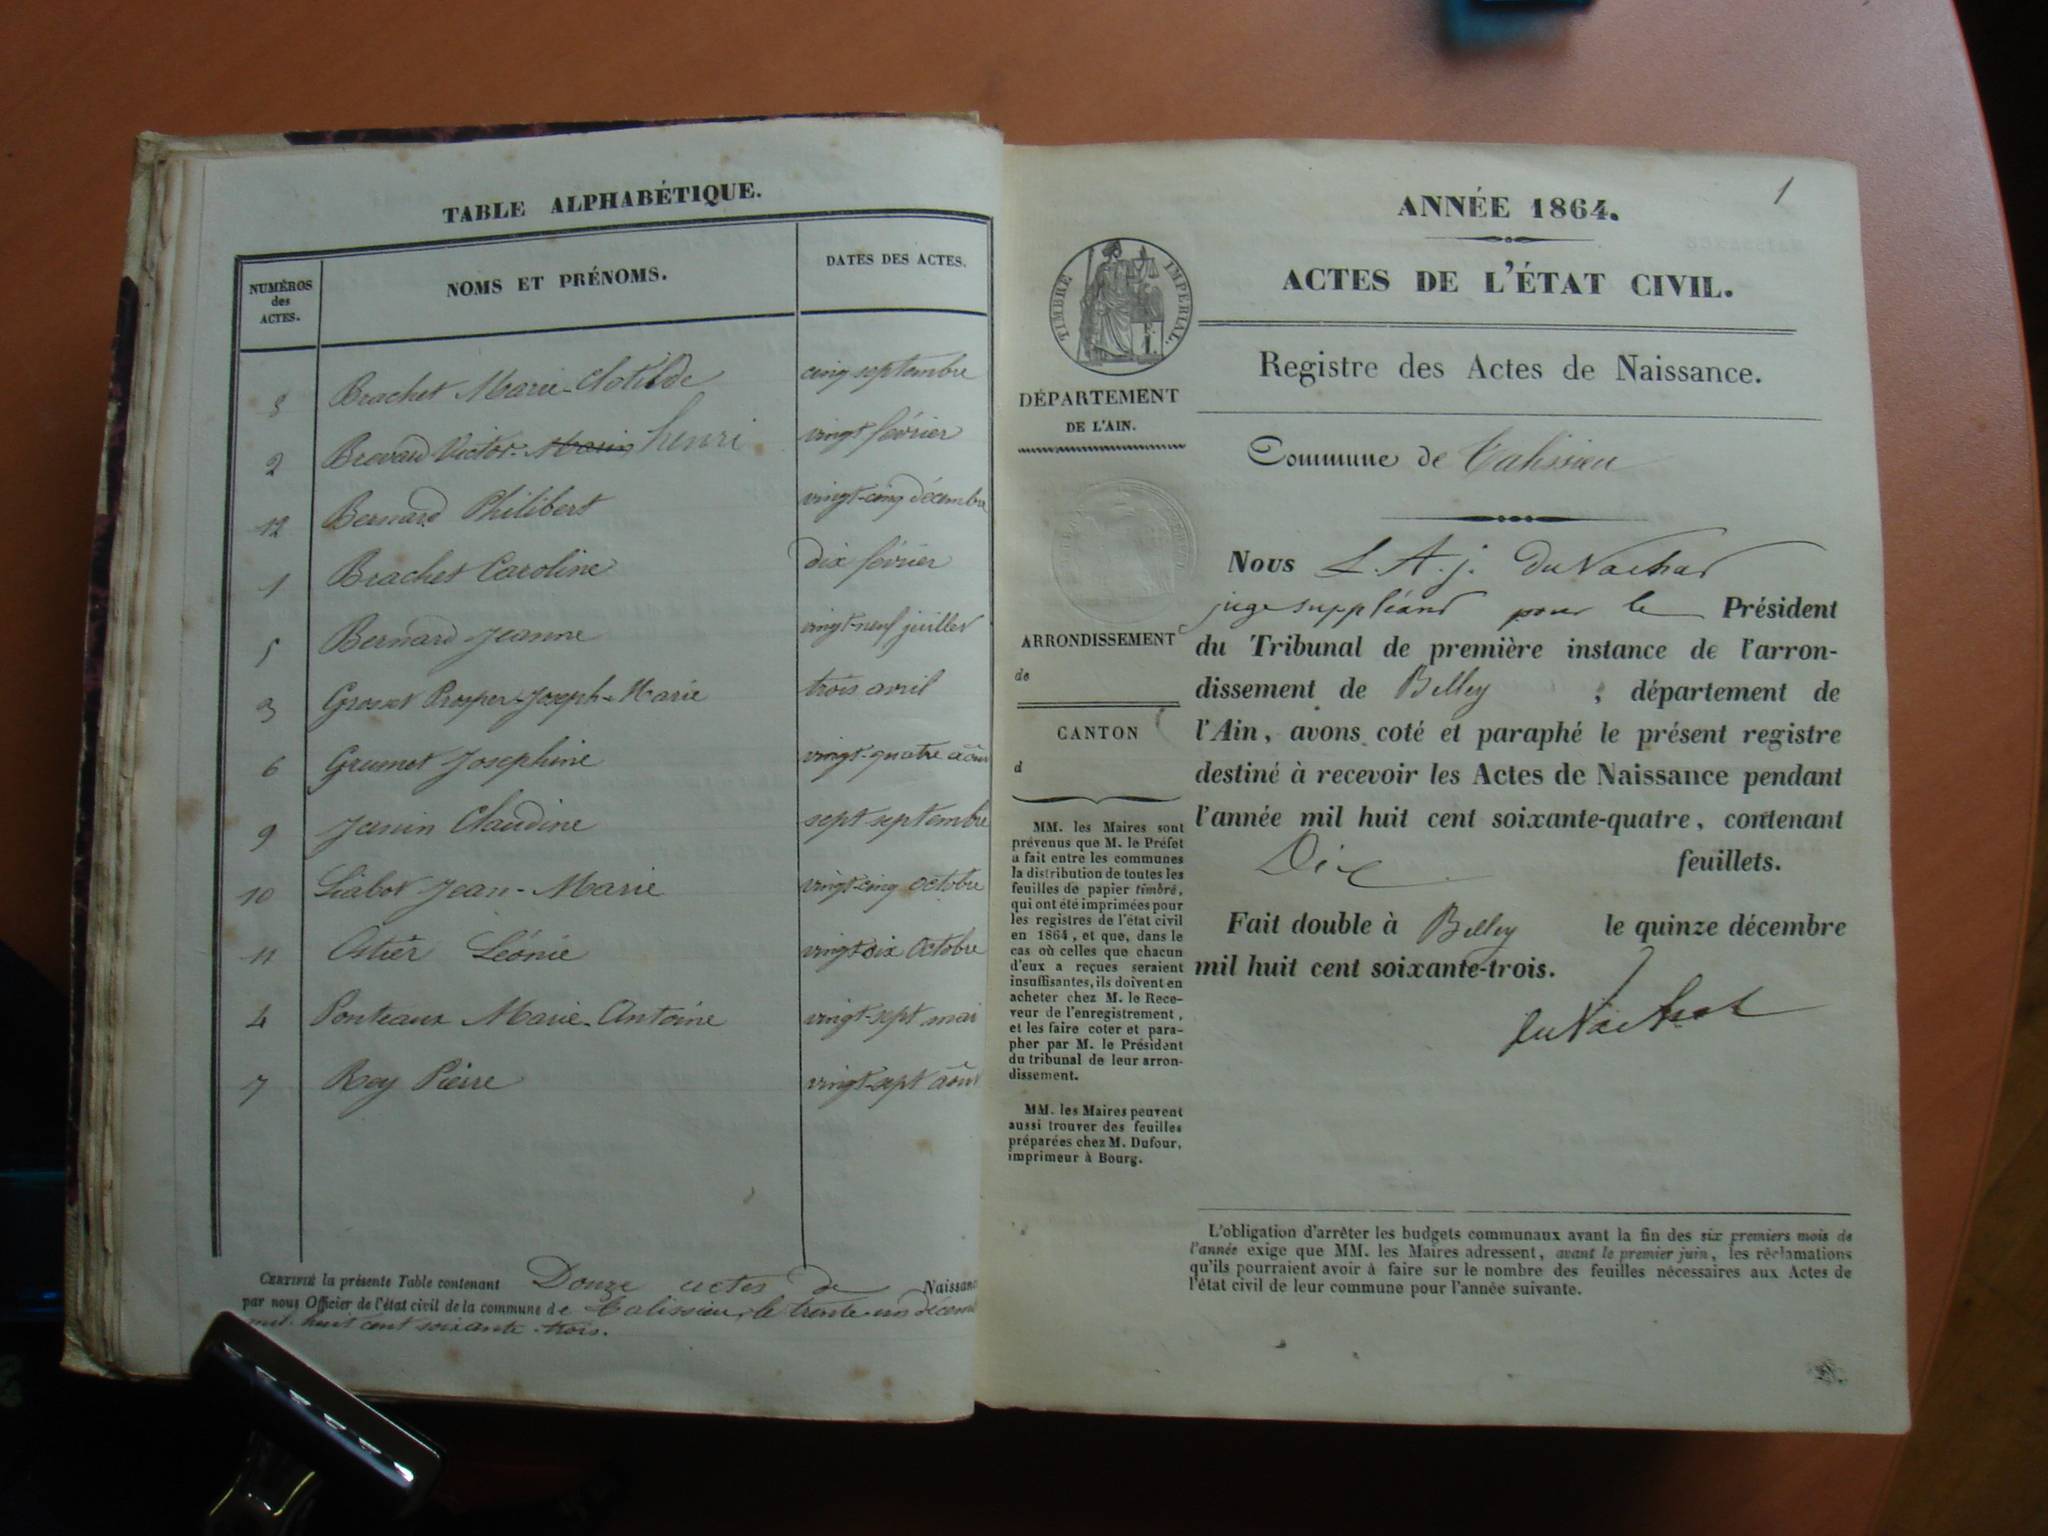 TABLE ALPHABÉTIQUE.
NUMÉROS des ACTES. NOMS ET PRÉNOMS. DATES DES ACTES.
8 Brachet Marie-Clotilde cinq septembre
2 Brevard Victor- Marie henri vingt février
12 Bernard Philibert vingt-cinq décembre
1 Brachet Caroline dix février
5 Bernard Jeanne vingt-neuf juillet
3 Grosset Prosper-Joseph-Marie trois avril
6 Grumet Josephine vingt-quatre août
9 Janin Claudine sept septembre
10 Liabot Jean-Marie vingt-cinq octobre
11 Léonie vingt-six Octobre
4 Ponteaux Marie-Antoine vingt-sept mai
7 Rey Pierre vingt-sept août
CERTIFIÉ la présente Table contenant Douze actes de Naissanc
par nous Officier de l'état civil de la commune de Talissieu, le trente-un décem
mil huit cent soixante-trois.
1
ANNÉE 1864.
ACTES DE L'ÉTAT CIVIL.
Registre des Actes de Naissance.
Commune de Talissieu
TIMBRE IMPÉRIAL.
DÉPARTEMENT
DE L'AIN.
ARRONDISSEMENT
de
CANTON
d
MM. les Maires sont
prévenus que M. le Préfet
a fait entre les communes
la distribution de toutes les
feuilles de papier timbré,
qui ont été imprimées pour
les registres de l'état civil
en 1864, et que, dans le
cas où celles que chacun
d'eux a reçues seraient
insuffisantes, ils doivent en
acheter chez M. le Rece-
veur de l'enregistrement,
et les faire coter et para-
pher par M. le Président
du tribunal de leur arron-
dissement.
MM. les Maires peuvent
aussi trouver des feuilles
préparées chez M. Dufour,
imprimeur à Bourg.
Nous L. A. j. DuVachat
juge suppléant pour le Président
du Tribunal de première instance de l'arron-
dissement de Belley ; département de
l'Ain, avons coté et paraphé le présent registre
destiné à recevoir les Actes de Naissance pendant
l'année mil huit cent soixante-quatre, contenant
Dix feuillets.
Fait double à Belley le quinze décembre
mil huit cent soixante-trois.
duVachat
L'obligation d'arrêter les budgets communaux avant la fin des six premiers mois de
l'année exige que MM. les Maires adressent, avant le premier juin, les réclamations
qu'ils pourraient avoir à faire sur le nombre des feuilles nécessaires aux Actes de
l'état civil de leur commune pour l'année suivante.